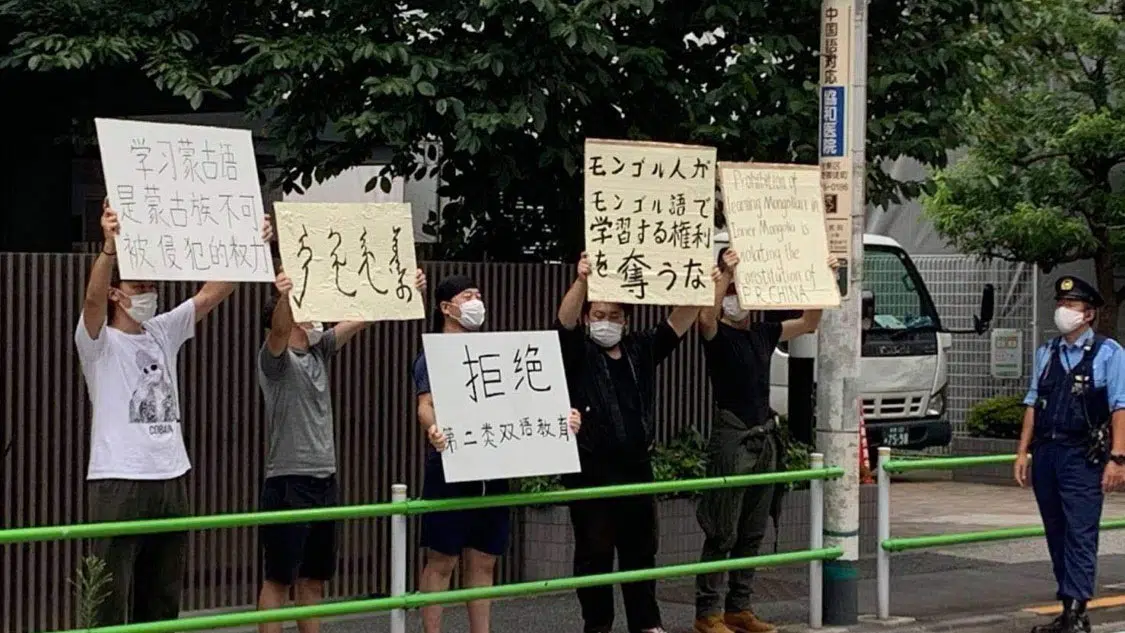 学习蒙古语
是蒙古族不可
被侵犯的权力
拒绝
第二类双语教育
モンゴル人が
モンゴル語で
学習する権利
を奪うな
Prohibition of
learning Mongolian in
Inner Mongolia is
violating the
Constitution of
P.R.CHINA
中国語対応
協和医院
COBAIN
75-90